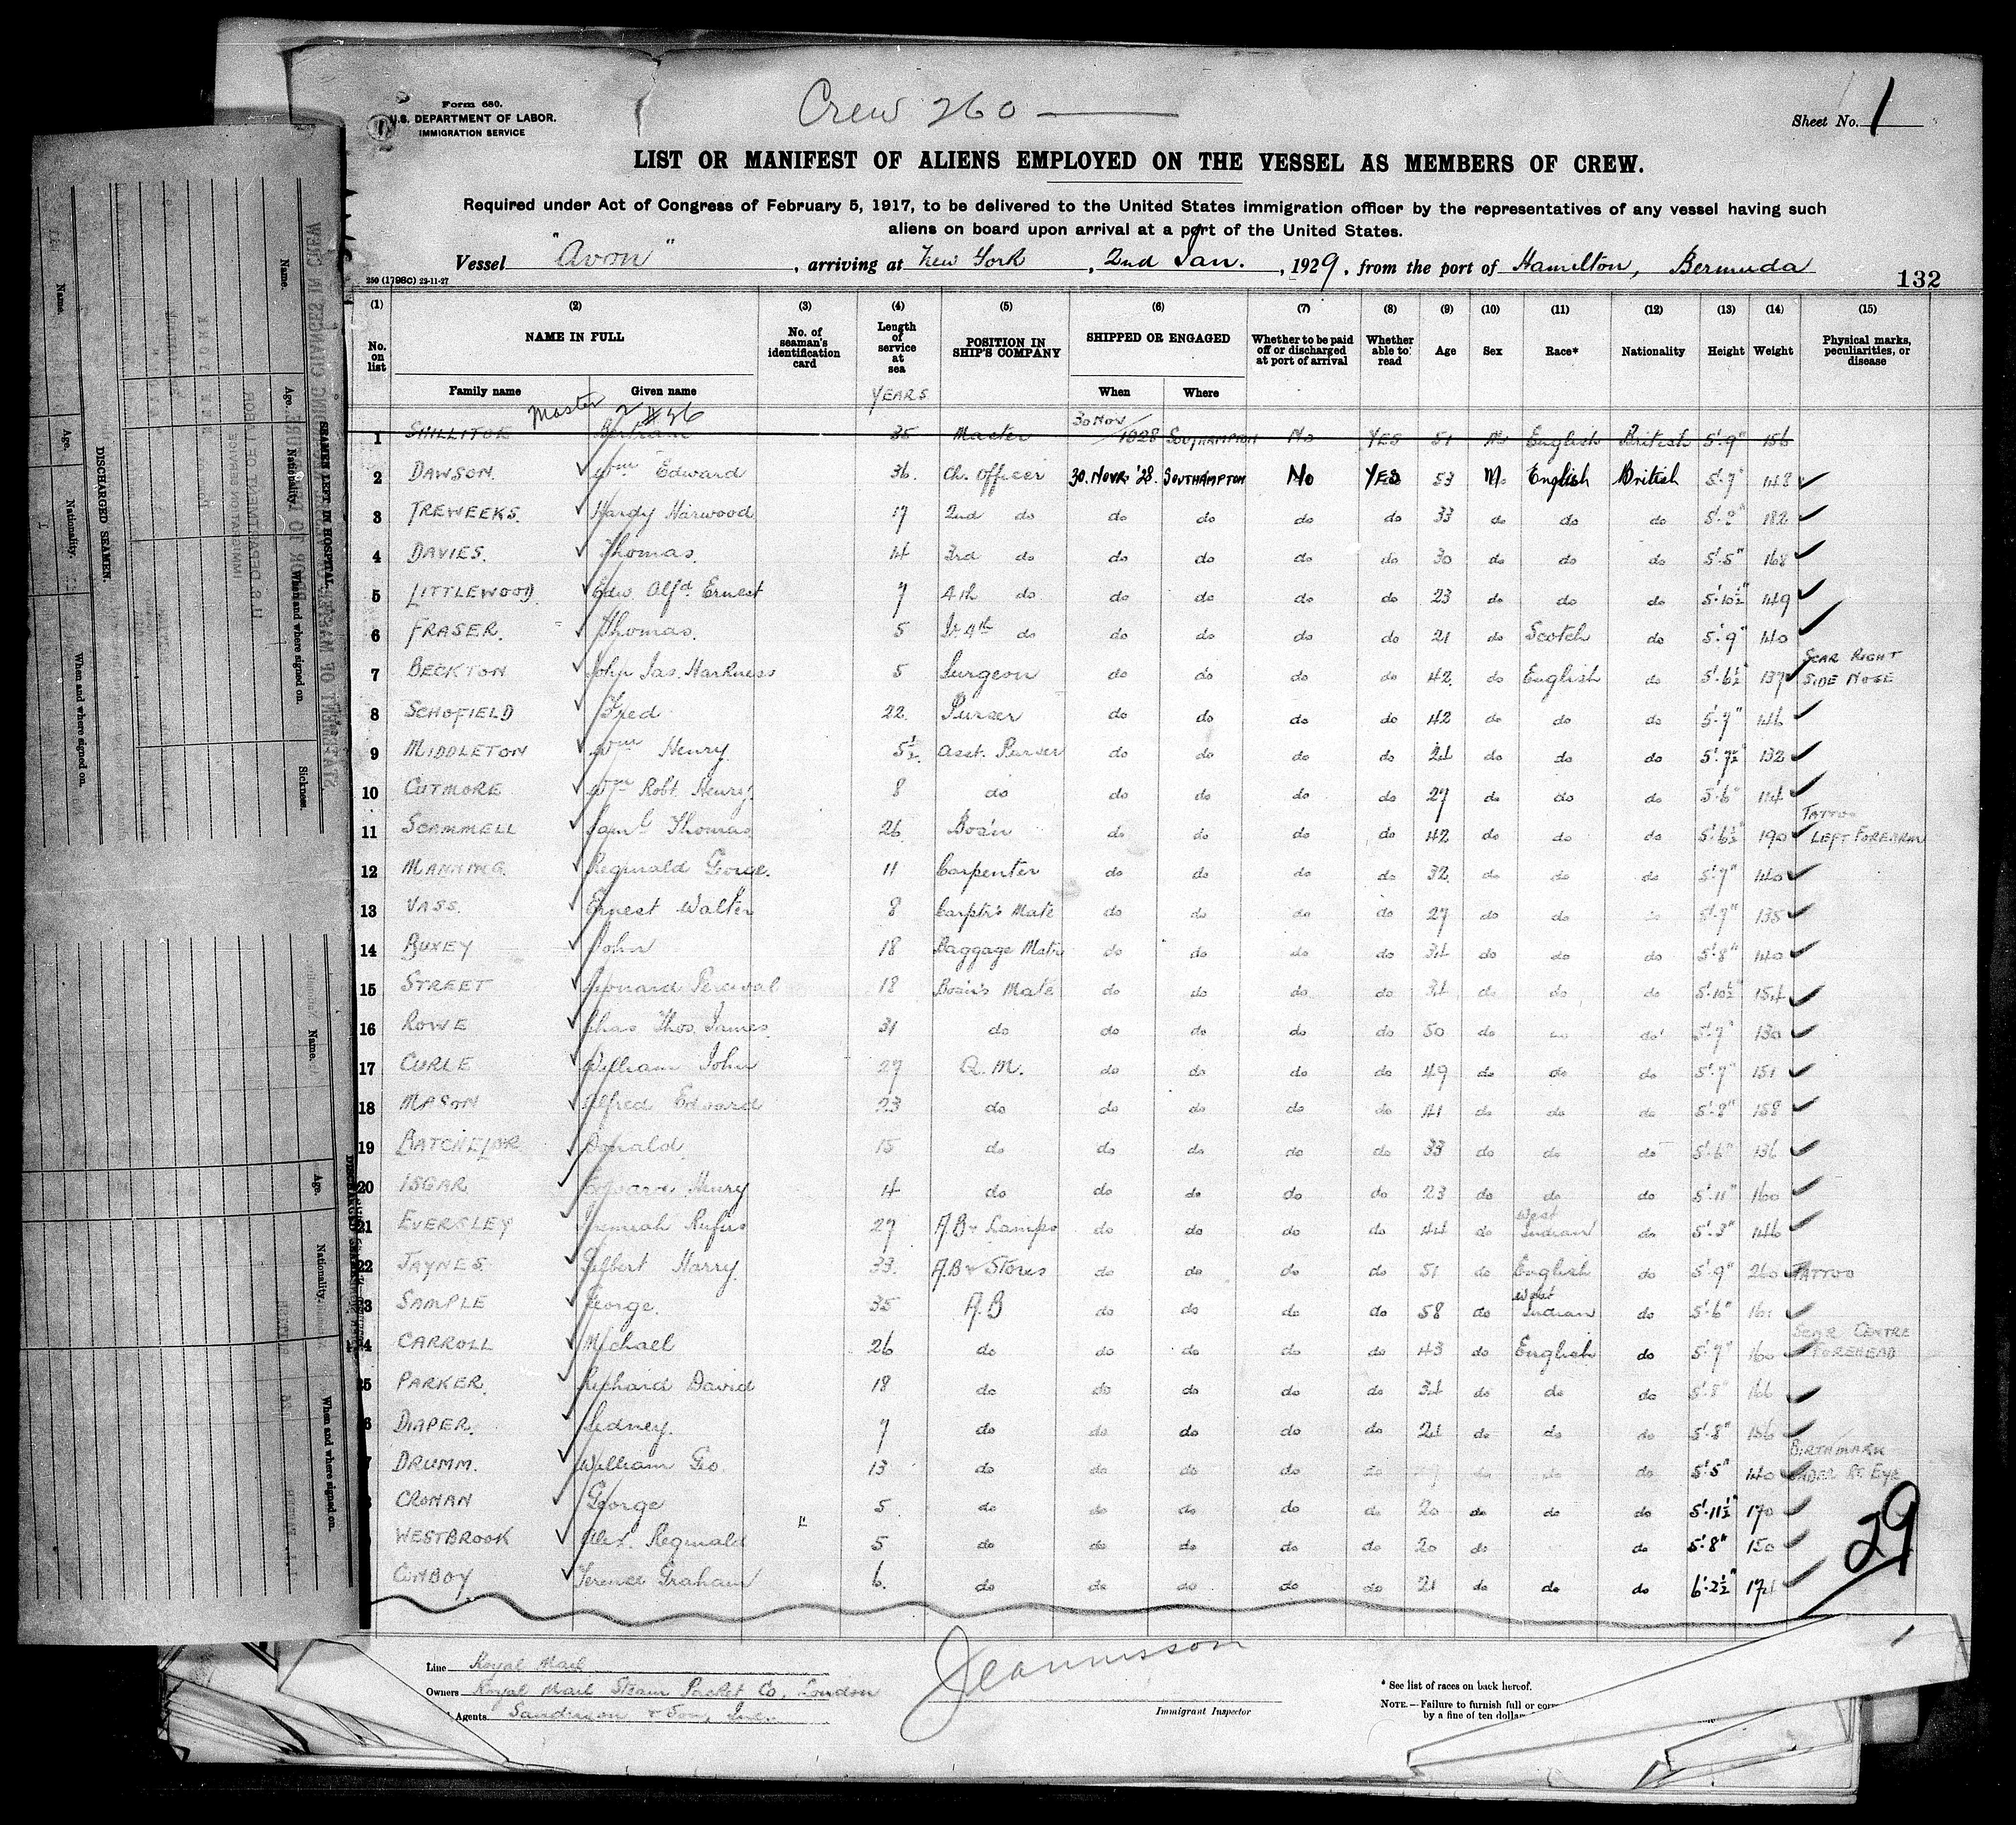 Crew 260
Form 680.
U.S. DEPARTMENT OF LABOR.
IMMIGRATION SERVICE
Sheet No. 1
LIST OR MANIFEST OF ALIENS EMPLOYED ON THE VESSEL AS MEMBERS OF CREW.
Required under Act of Congress of February 5, 1917, to be delivered to the United States immigration officer by the representatives of any vessel having such
aliens on board upon arrival at a port of the United States.
Vessel "Avon", arriving at New York, 2nd Jan., 1929, from the port of Hamilton, Bermuda
250 (1798C) 23-11-27
132
(1) (2) (3) (4) (5) (6) (7) (8) (9) (10) (11) (12) (13) (14) (15)
No. on list NAME IN FULL No. of seaman's identification card Length of service at sea POSITION IN SHIP'S COMPANY SHIPPED OR ENGAGED Whether to be paid off or discharged at port of arrival Whether able to read Age Sex Race* Nationality Height Weight Physical marks, peculiarities, or disease
Family name Given name YEARS When Where
Master
1 SHILLITOE Bertram 35 Master 30 Nov/1928 SOUTHAMPTON No YES 51 M English British 5'.9" 156
2 DAWSON. Wm Edward 36. Ch. Officer 30.NOVR.'28. SOUTHAMPTON No YES 53 M. English British 5'.7" 148
3 TREWEEKS. Hardy Harwood 17 2nd do do do do do 33 do do do 182
4 DAVIES. Thomas. 14 3rd do do do do do 30 do do do 5'.5" 168
5 LITTLEWOOD. Edw. Alfd. Ernest 7 4th do do do do do 23 do do do 5'.10½" 149
6 FRASER. Thomas. 5 4th do do do do do 21 do Scotch do 5'.9" 140
7 BECKTON John Jas. Harkness 5 Surgeon do do do do 42. do English do 5'.6½" 137 SCAR RIGHT SIDE NOSE
8 SCHOFIELD Fred 22. Purser do do do do 42 do do do 5'.7" 146
9 MIDDLETON Wm Henry. 5½. Asst. Purser do do do do 24 do do do 5'.7½" 132
10 CUTMORE Wm Robt. Henry. 8 do do do do do 27 do do do 5'.6" 114
11 SCAMMELL Saml. Thomas 26 Bos'n do do do do 42 do do do 5'.6½" 190 TATTOO LEFT FOREARM
12 MANNING. Reginald George. 11 Carpenter do do do do 32. do do do 5'.7" 140
13 VASS. Ernest Walter 8 Carptr's Mate do do do do 27 do do do 5'.7" 135
14 BUXEY John 18 Baggage Mastr do do do do 34 do do do 5'.8" 140
15 STREET Leonard Percival 18 Bos'n's Mate do do do do 34 do do do 5'.10½" 154
16 ROWE Chas. Thos. James 31 do do do do do 50 do do do 5'.7" 130
17 CURLE William John 27 Q.M. do do do do 49 do do do 5'.7" 151
18 MASON Alfred Edward 23 do do do do do 41 do do do 5'.8" 158
19 BATCHELOR Donald. 15 do do do do do 33 do do do 5'.6" 136
20 ISGAR Edward Henry 4 do do do do do 23 do do do 5'.11" 160
21 EVERSLEY Jeremiah Rufus 27 A.B & Lamps do do do do 44 do West Indian do 5'.3" 146
22 JAYNES. Gilbert Harry. 33. A.B & Stores do do do do 51 do English do 5'.9" 260 TATTOO
3 SAMPLE George. 35 A.B do do do do 58 do West Indian do 5'.6" 161
4 CARROLL Michael 26 do do do do do 43 do English do 5'.7" 160 SCAR CENTRE FOREHEAD
5 PARKER. Richard David 18 do do do do do 34 do do do 5'.8" 166
6 DIAPER. Sidney. 7 do do do do do 24 do do do 5'.8" 156
7 DRUMM. William Geo. 13 do do do do do do do do 5'.5" 140 BIRTHMARK UNDER RT. EYE
CRONAN George 5 do do do do do 20 do do do 5'.11½" 170
WESTBROOK Alex. Reginald 5 do do do do do 20 do do 5'.8" 150
CONBOY. Terence Graham 6. do do do do do 21 do do do 6'.2½" 174
29
Line Royal Mail
Owners Royal Mail Steam Packet Co. London
Agents. Sanderson & Son, Inc.
Immigrant Inspector
* See list of races on back hereof.
NOTE.—Failure to furnish full or
by a fine of ten dollar
SEAMEN LEFT IN HOSPITAL
Name. Age. Nationality. When and where signed on. Sickness.
DISCHARGED SEAMEN.
Name. Age. Nationality. When and where signed on.
Name. Age. Nationality. When and where signed on.